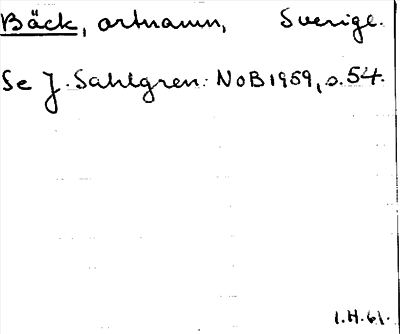 Bäck, ortnamn, Sverige.
Se J. Sahlgren. NoB 1959, s. 54.
I.H.61.